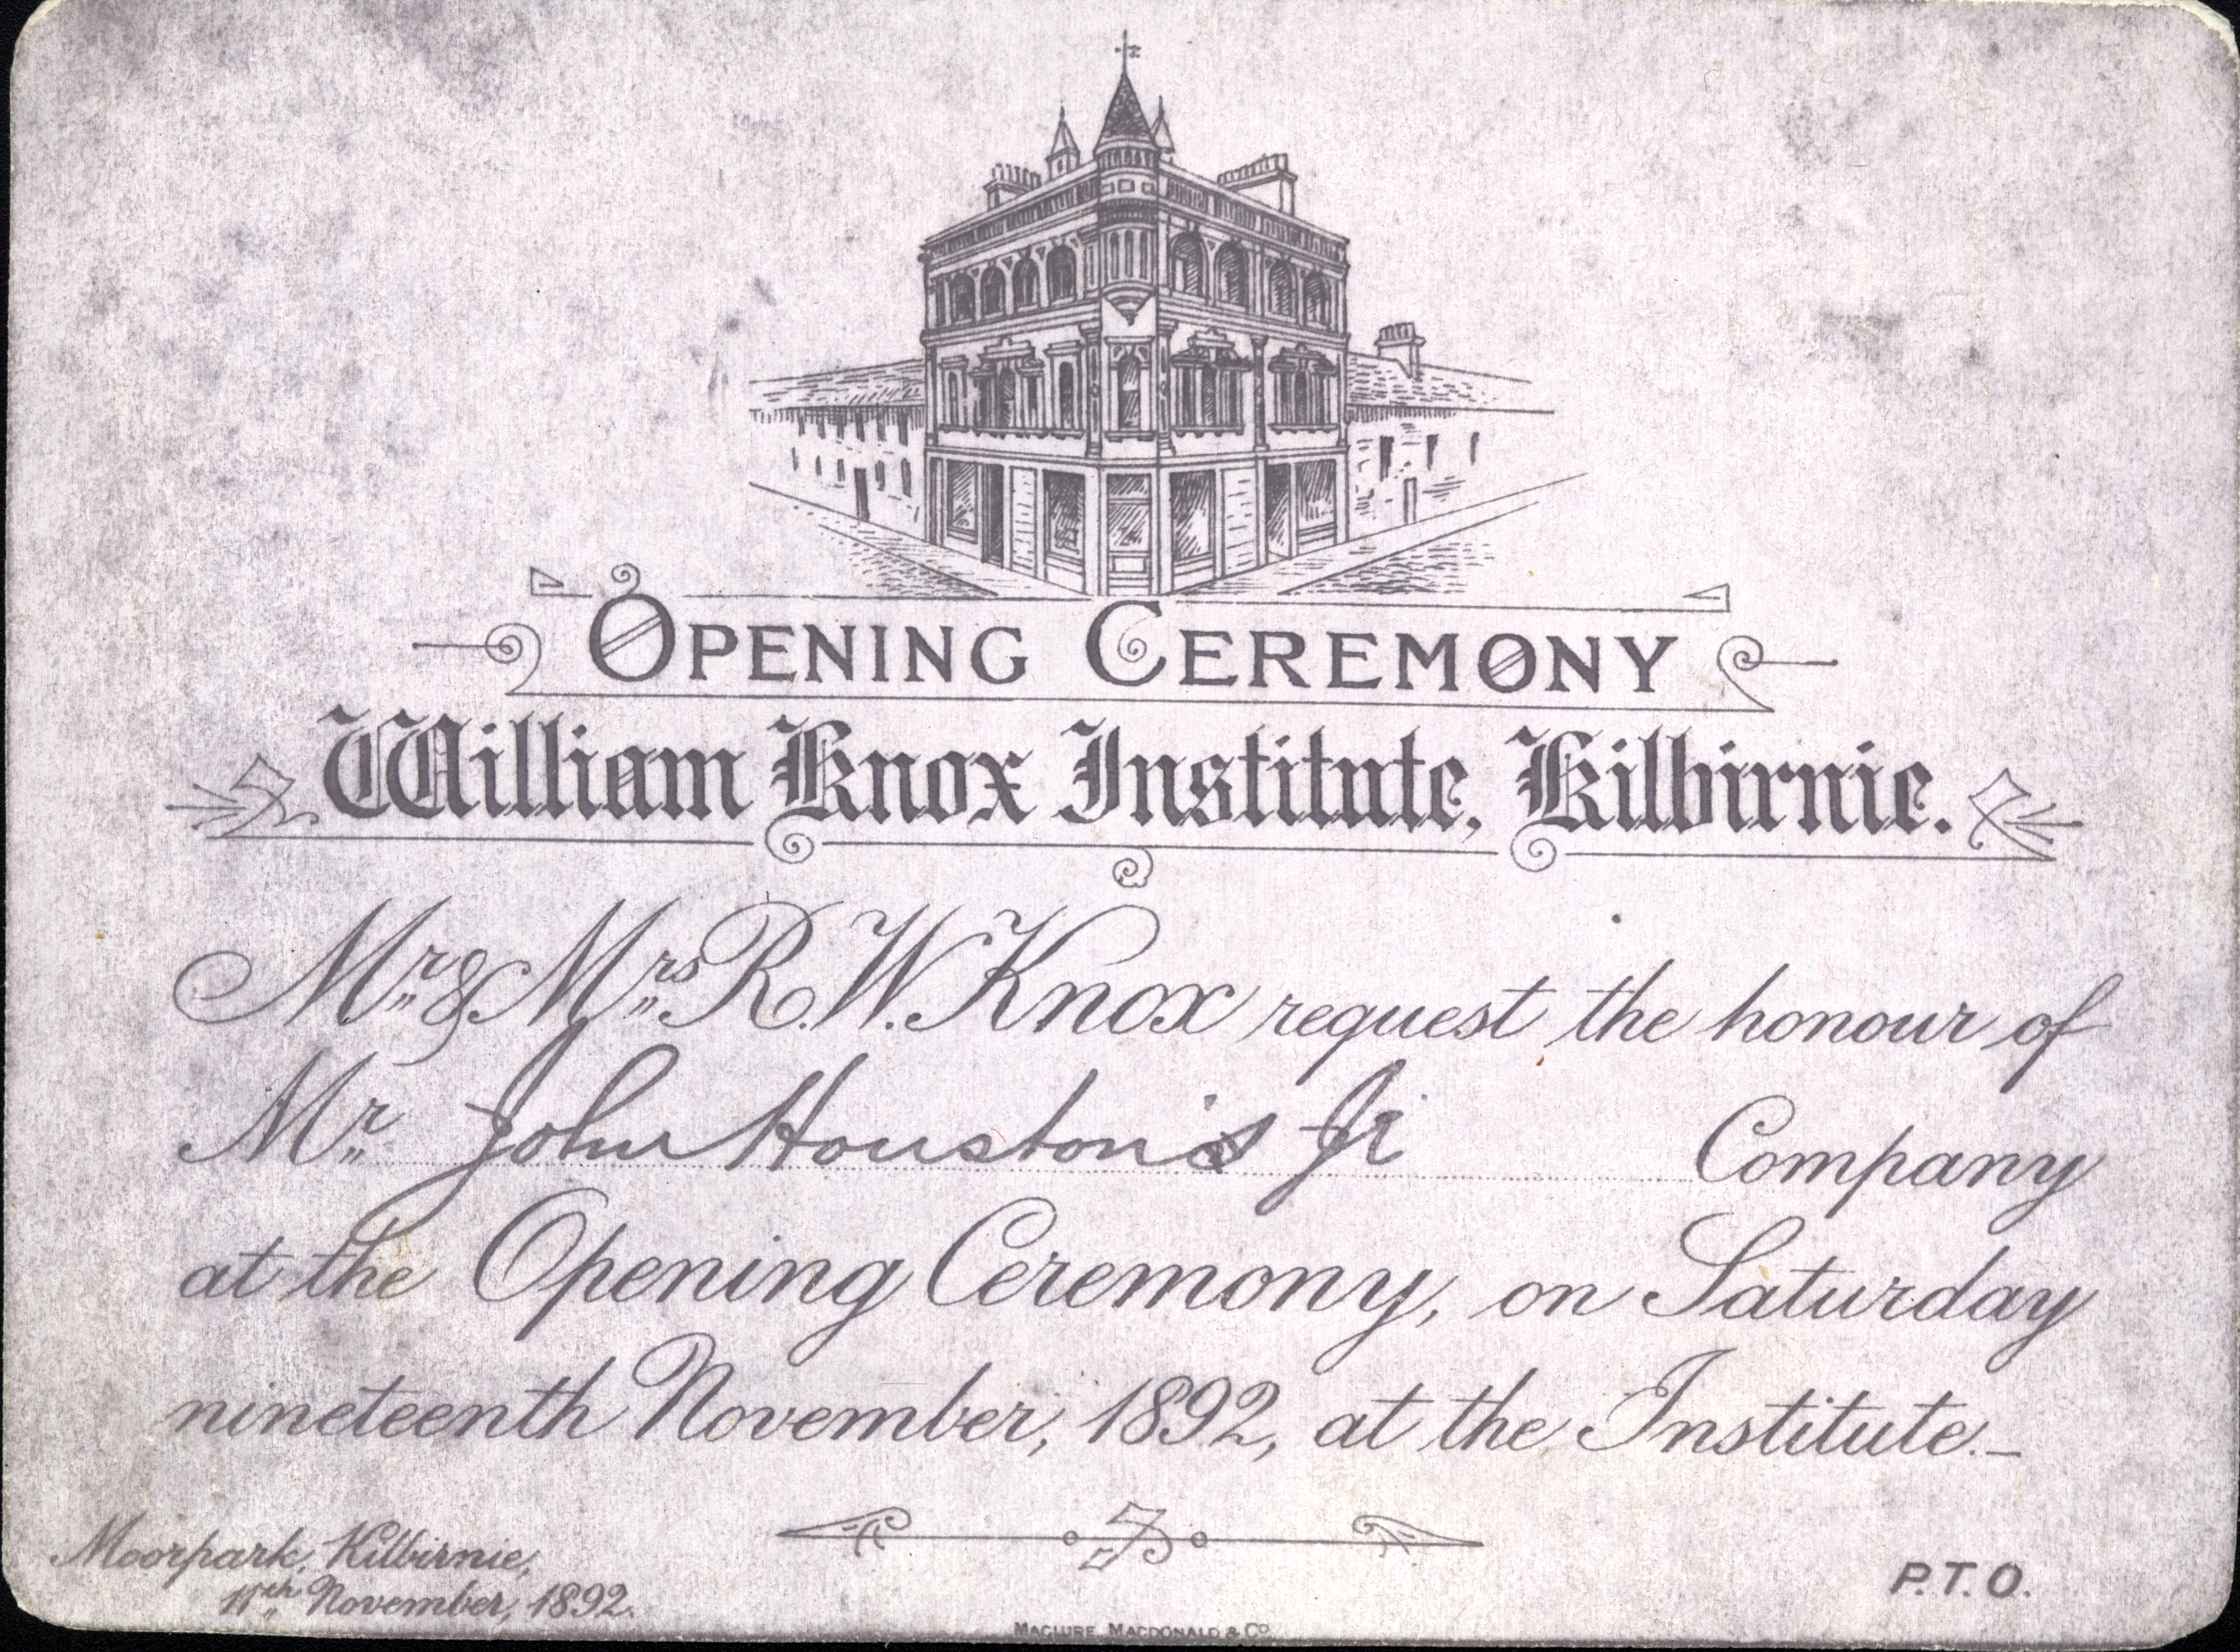 OPENING CEREMONY
William Knox Institute, Kilbirnie.
Mr. & Mrs. R. W. Knox request the honour of
Mr. John Houston's Jr Company
at the Opening Ceremony, on Saturday
nineteenth November, 1892, at the Institute.—
Moorpark, Kilbirnie,
11th November, 1892.
P.T.O.
MACLURE MACDONALD & CO.